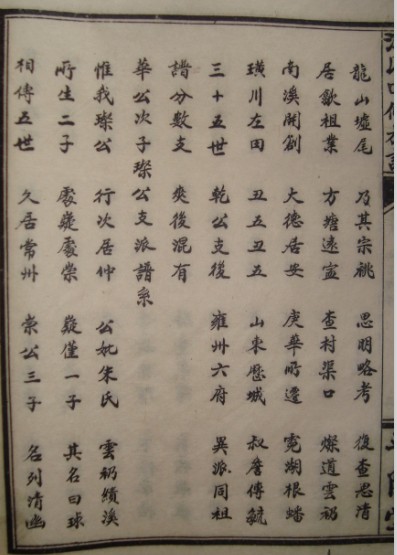 龍山墟尾 乃其宗祧 思明略考 後查思清
居歙祖業 方塘遠宦 查村渠口 燦道雲礽
南溪開創 大德居安 庚華所遷 寬湖根蟠
璜川左田 丑五丑五 山東歷城 叔詹傳毓
三十五世 乾公支後 雍州六府 異派同祖
譜分數支 爽後混有
華公次子璨公支派譜系
惟我璨公 行次居仲 公妣朱氏 雲礽績溪
所生二子 處嶷處崇 嶷僅一子 其名曰球
相傳五世 久居常州 崇公三子 名列清幽